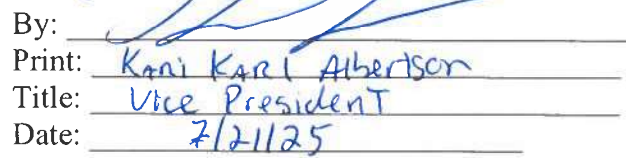 By:
Print: KARI KARI Albertson
Title: Vice President
Date: 7/21/25